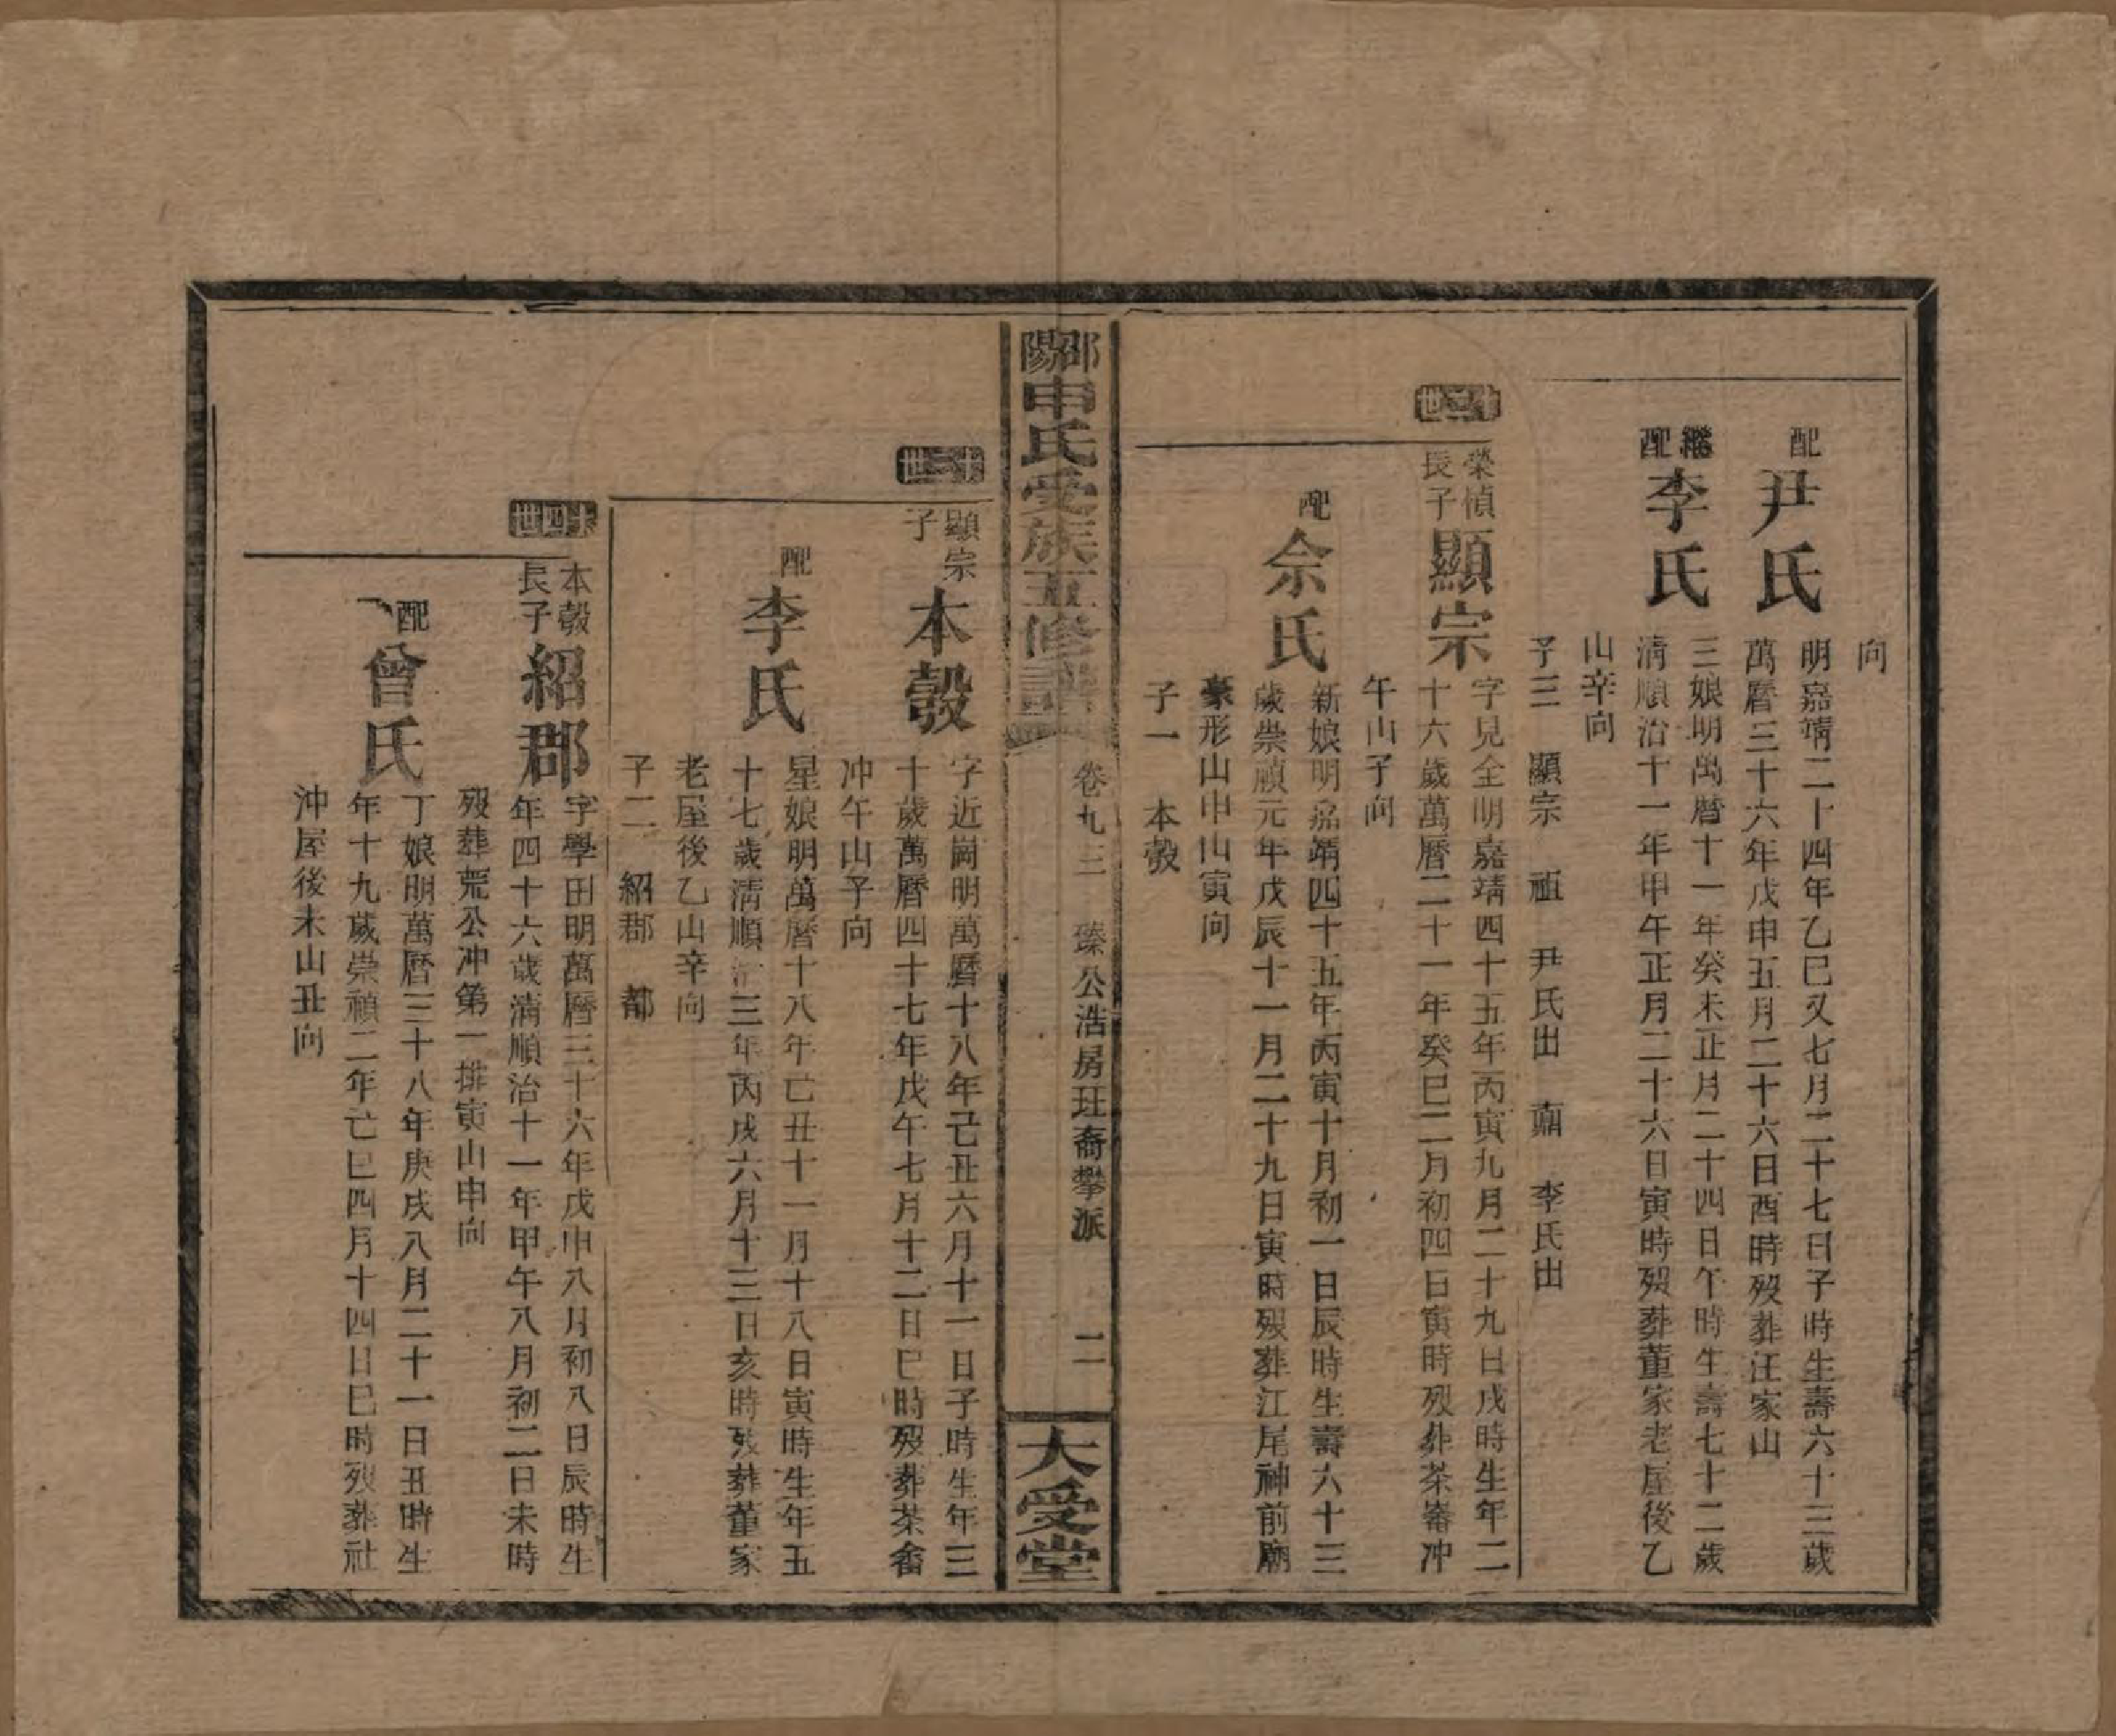 向
配尹氏
明嘉靖二十四年乙巳又七月二十七日子時生壽六十三歲
萬曆三十六年戊申五月二十六日酉時歿葬汪家山
繼配李氏
三娘明萬曆十一年癸未正月二十四日午時生壽七十二歲
清順治十一年甲午正月二十六日寅時歿葬董家老屋後乙
山辛向
子三 顯宗 祖 尹氏出 鼐 李氏出
十二世
榮楨長子顯宗
字見全明嘉靖四十五年丙寅九月二十九日戌時生年二
十六歲萬曆二十一年癸巳二月初四日寅時歿葬茶畬冲
午山子向
配佘氏
新娘明嘉靖四十五年丙寅十月初一日辰時生壽六十三
歲崇禎元年戊辰十一月二十九日寅時歿葬江尾神前廟
豪形山申山寅向
子一 本嗀
邵陽申氏受族五修譜
卷九三 瑧公浩房珏裔攀派
二
大受堂
十三世
顯宗子本嗀
字近崗明萬曆十八年己丑六月十一日子時生年三
十歲萬曆四十七年戊午七月十二日巳時歿葬茶畬
冲午山子向
配李氏
星娘明萬曆十八年己丑十一月十八日寅時生年五
十七歲清順治三年丙戌六月十三日亥時歿葬董家
老屋後乙山辛向
子二 紹郡 都
十四世
本嗀長子紹郡
字學田明萬曆三十六年戊申八月初八日辰時生
年四十六歲清順治十一年甲午八月初二日未時
歿葬荒公冲第一排寅山申向
配曾氏
丁娘明萬曆三十八年庚戌八月二十一日丑時生
年十九歲崇禎二年己巳四月十四日巳時歿葬社
沖屋後未山丑向